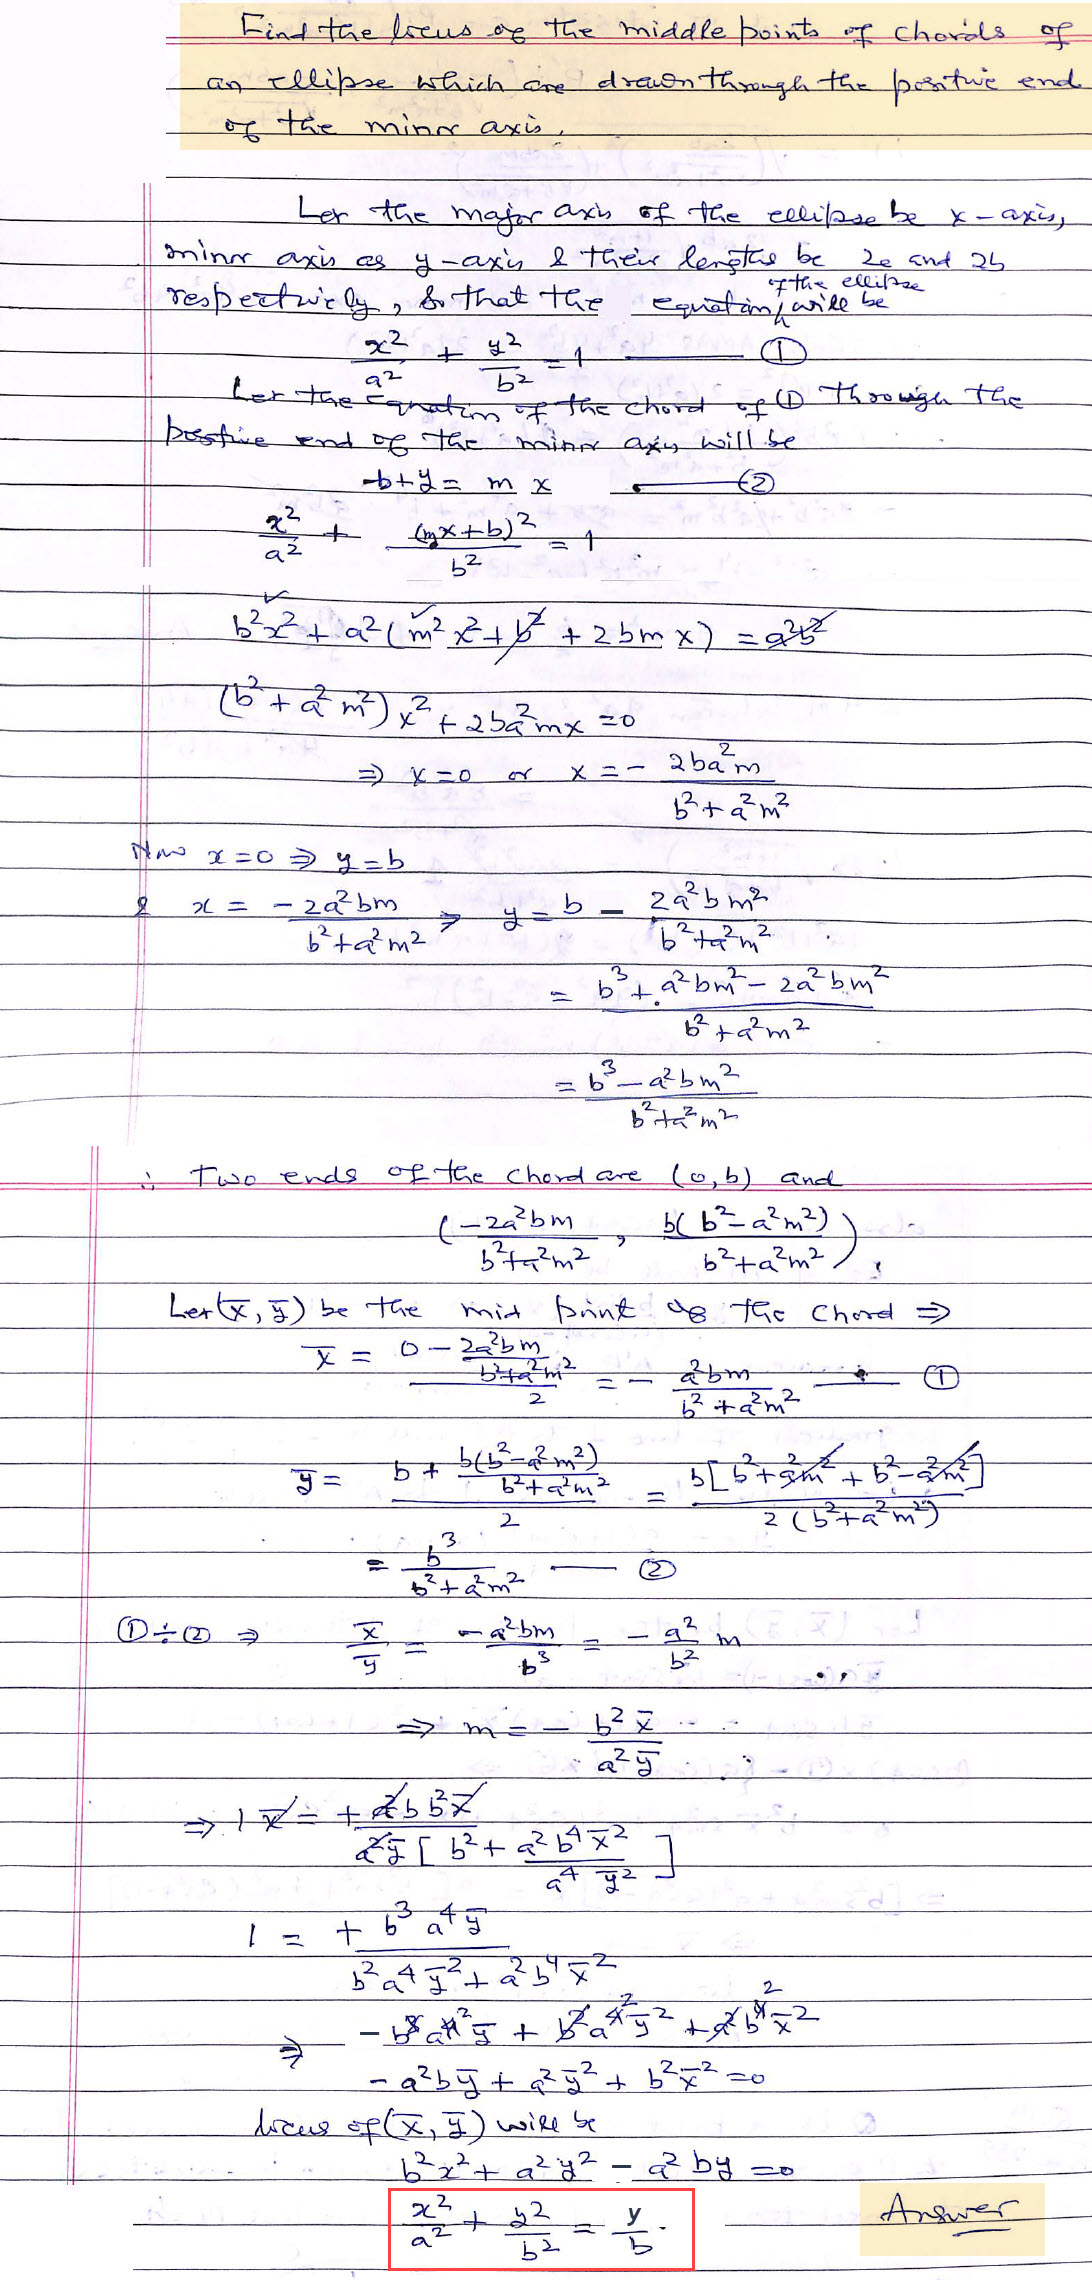 Find the locus of the middle points of chords of
an ellipse which are drawn through the positive end
of the minor axis.
Let the major axis of the ellipse be x-axis,
minor axis as y-axis & their lengths be 2a and 2b
respectively, so that the equation of the ellipse will be
x²/a² + y²/b² = 1 —— ①
Let the equation of the chord of ① through the
positive end of the minor axis will be
-b+y = m x —— ②
x²/a² + (mx+b)²/b² = 1
b²x² + a²(m²x² + b² + 2bmx) = a²b²
(b² + a²m²)x² + 2ba²mx = 0
⇒ x=0 or x = - 2ba²m/(b² + a²m²)
Now x=0 ⇒ y=b
& x = -2a²bm/(b²+a²m²) ⇒ y = b - 2a²bm²/(b²+a²m²)
= (b³ + a²bm² - 2a²bm²)/(b²+a²m²)
= (b³ - a²bm²)/(b²+a²m²)
∴ Two ends of the chord are (0,b) and
(-2a²bm/(b²+a²m²), b(b²-a²m²)/(b²+a²m²)).
Let (x̄, ȳ) be the mid point of the chord ⇒
x̄ = (0 - 2a²bm/(b²+a²m²))/2 = - a²bm/(b²+a²m²) —— ①
ȳ = (b + b(b²-a²m²)/(b²+a²m²))/2 = b[b²+a²m²+b²-a²m²]/(2(b²+a²m²))
= b³/(b²+a²m²) —— ②
①÷② ⇒ x̄/ȳ = -a²bm/b³ = - a²/b² m
⇒ m = - b²x̄/(a²ȳ)
⇒ 1 x̄ = + a²b b²x̄/(a²ȳ[b² + a²b⁴x̄²/(a⁴ȳ²)])
1 = + b³a⁴ȳ/(b²a⁴ȳ² + a²b⁴x̄²)
⇒ -b³a⁴²ȳ + b²a⁴²ȳ² + a²b⁴²x̄²
-a²bȳ + a²ȳ² + b²x̄² = 0
locus of (x̄, ȳ) will be
b²x² + a²y² - a²by = 0
x²/a² + y²/b² = y/b.
Answer